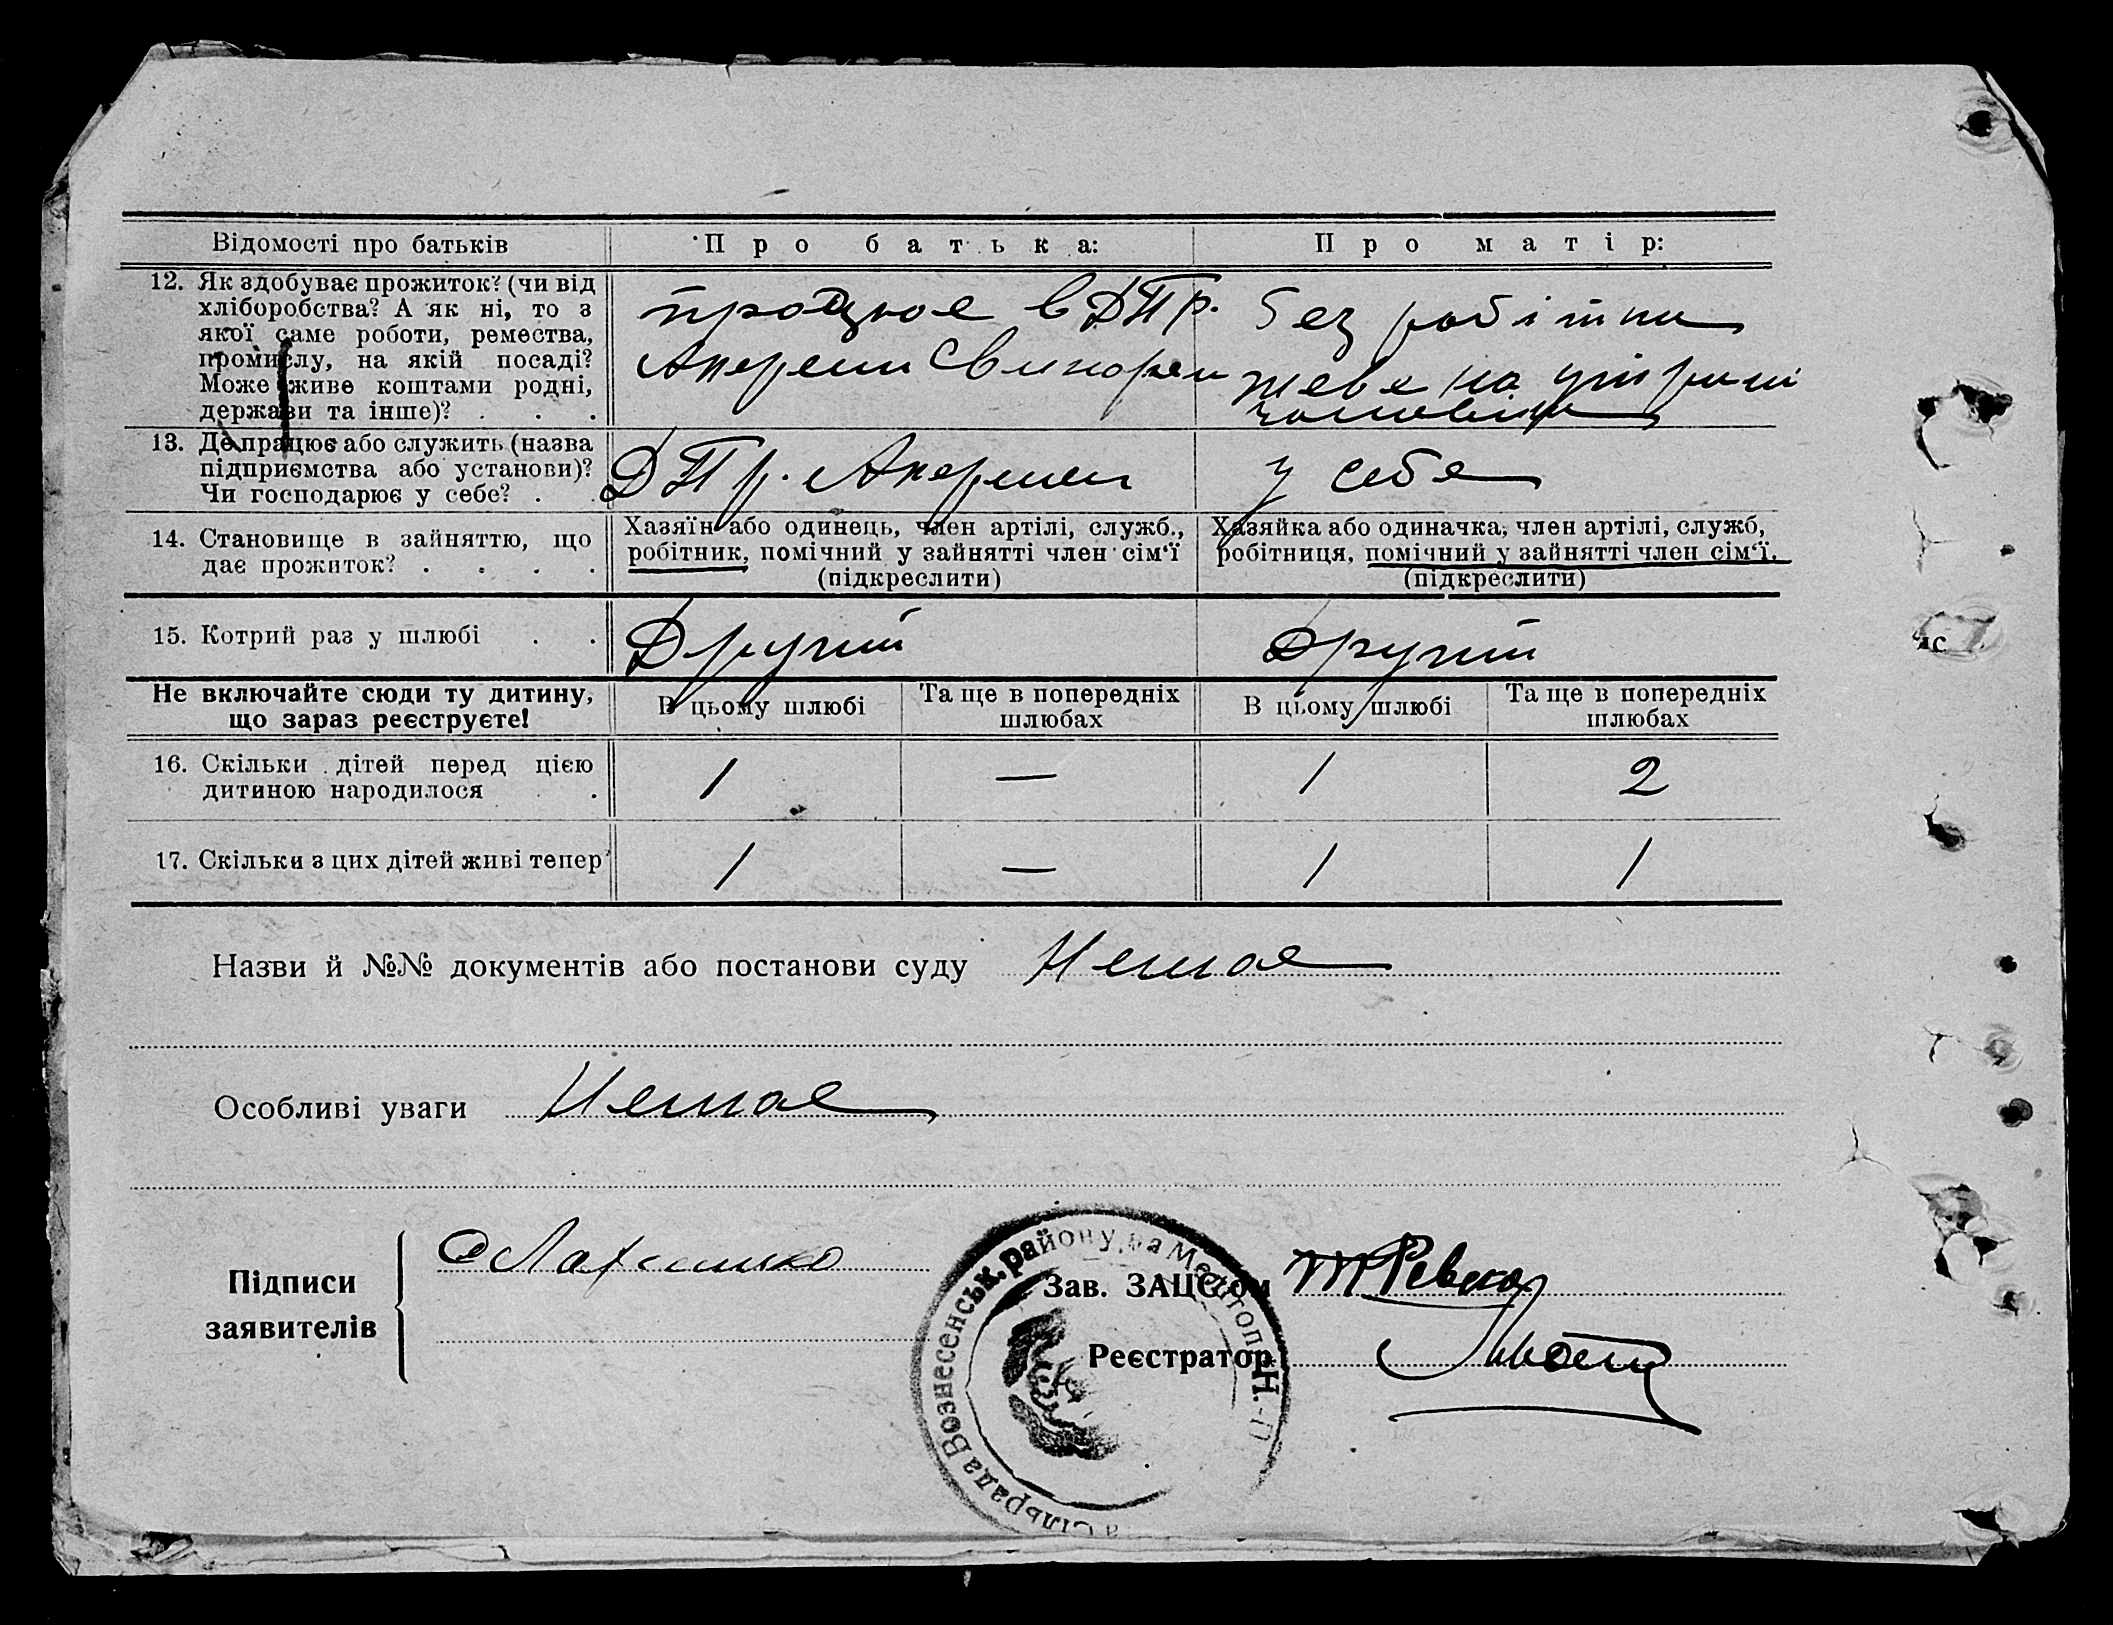 Відомості про батьків
Про батька:
Про матір:
12. Як здобуває прожиток? (чи від
хліборобства? А як ні, то з
якої саме роботи, ремества,
промислу, на якій посаді?
Може живе коштами родні,
держави та інше)? . . .
працює в ДТТр.
Акермен Свинорем
Без робітни
живе на утрими
чоловіка
13. Де працює або служить (назва
підприємства або установи)?
Чи господарює у себе? . .
ДТТр. Акермен
у себе
14. Становище в зайняттю, що
дає прожиток? . . . .
Хазяїн або одинець, член артілі, служб.,
робітник, помічний у зайнятті член сім‘ї
(підкреслити)
Хазяйка або одиначка, член артілі, служб,
робітниця, помічний у зайнятті член сім‘ї.
(підкреслити)
15. Котрий раз у шлюбі . .
Другий
Другий
Не включайте сюди ту дитину,
що зараз реєструєте!
В цьому шлюбі
Та ще в попередніх
шлюбах
В цьому шлюбі
Та ще в попередніх
шлюбах
16. Скільки дітей перед цією
дитиною народилося .
1 — 1 2
17. Скільки з цих дітей живі тепер
1 — 1 1
Назви й №№ документів або постанови суду Немає
Особливі уваги Немає
Підписи
заявителів
Зав. ЗАЦС‘ом
Реєстратор
сільрада Вознесенськ. району, на Мелітопіл